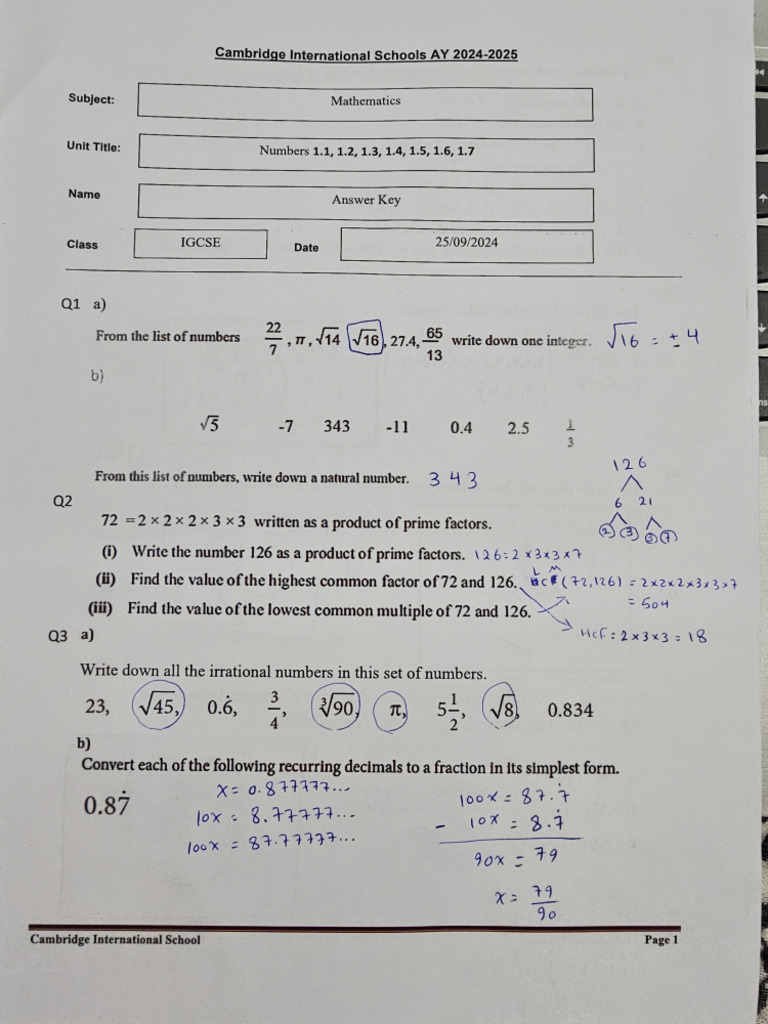 Cambridge International Schools AY 2024-2025
Subject: Mathematics
Unit Title: Numbers 1.1, 1.2, 1.3, 1.4, 1.5, 1.6, 1.7
Name Answer Key
Class IGCSE Date 25/09/2024
Q1 a)
From the list of numbers 22/7, π, √14 √16, 27.4, 65/13 write down one integer. √16 = ± 4
b)
√5 -7 343 -11 0.4 2.5 1/3
From this list of numbers, write down a natural number. 343
126
Q2
6 21
72 = 2 × 2 × 2 × 3 × 3 written as a product of prime factors.
2 3 3 7
(i) Write the number 126 as a product of prime factors. 126 = 2 × 3 × 3 × 7
(ii) Find the value of the highest common factor of 72 and 126. LCM (72,126) = 2×2×2×3×3×7
= 504
(iii) Find the value of the lowest common multiple of 72 and 126.
HCF = 2×3×3 = 18
Q3 a)
Write down all the irrational numbers in this set of numbers.
23, √45, 0.6̇, 3/4, ∛90, π, 5 1/2, √8, 0.834
b)
Convert each of the following recurring decimals to a fraction in its simplest form.
0.87̇
x = 0.877777...
10x = 8.77777...
100x = 87.77777...
100x = 87.7̇
- 10x = 8.7̇
90x = 79
x = 79/90
Cambridge International School Page 1